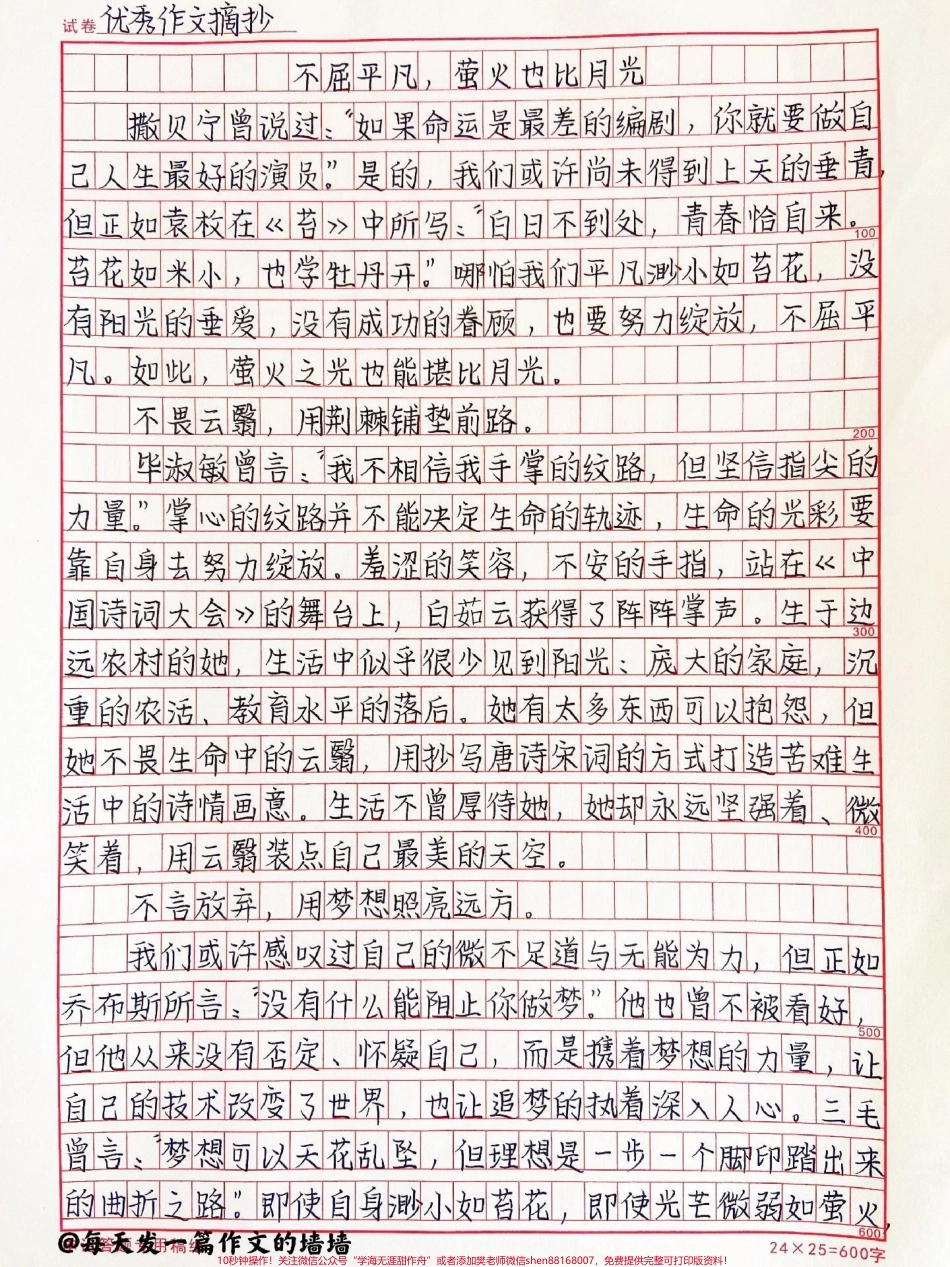 试卷 优秀作文摘抄
不屈平凡，萤火也比月光
撒贝宁曾说过：“如果命运是最差的编剧，你就要做自
己人生最好的演员。”是的，我们或许尚未得到上天的垂青，
但正如袁枚在《苔》中所写：“白日不到处，青春恰自来。
100
苔花如米小，也学牡丹开。”哪怕我们平凡渺小如苔花，没
有阳光的垂爱，没有成功的眷顾，也要努力绽放，不屈平
凡。如此，萤火之光也能堪比月光。
不畏云翳，用荆棘铺垫前路。
200
毕淑敏曾言：“我不相信我手掌的纹路，但坚信指尖的
力量。”掌心的纹路并不能决定生命的轨迹，生命的光彩要
靠自身去努力绽放。羞涩的笑容，不安的手指，站在《中
国诗词大会》的舞台上，白茹云获得了阵阵掌声。生于边
300
远农村的她，生活中似乎很少见到阳光：庞大的家庭，沉
重的农活、教育水平的落后。她有太多东西可以抱怨，但
她不畏生命中的云翳，用抄写唐诗宋词的方式打造苦难生
活中的诗情画意。生活不曾厚待她，她却永远坚强着、微
400
笑着，用云翳装点自己最美的天空。
不言放弃，用梦想照亮远方。
我们或许感叹过自己的微不足道与无能为力，但正如
乔布斯所言：“没有什么能阻止你做梦。”他也曾不被看好，
500
但他从来没有否定、怀疑自己，而是携着梦想的力量，让
自己的技术改变了世界，也让追梦的执着深入人心。三毛
曾言：“梦想可以天花乱坠，但理想是一步一个脚印踏出来
的曲折之路。”即使自身渺小如苔花，即使光芒微弱如萤火，
600
@每天发一篇作文的墙墙
24×25=600字
10秒钟操作！关注微信公众号“学海无涯甜作舟”或者添加樊老师微信shen88168007，免费提供完整可打印版资料！